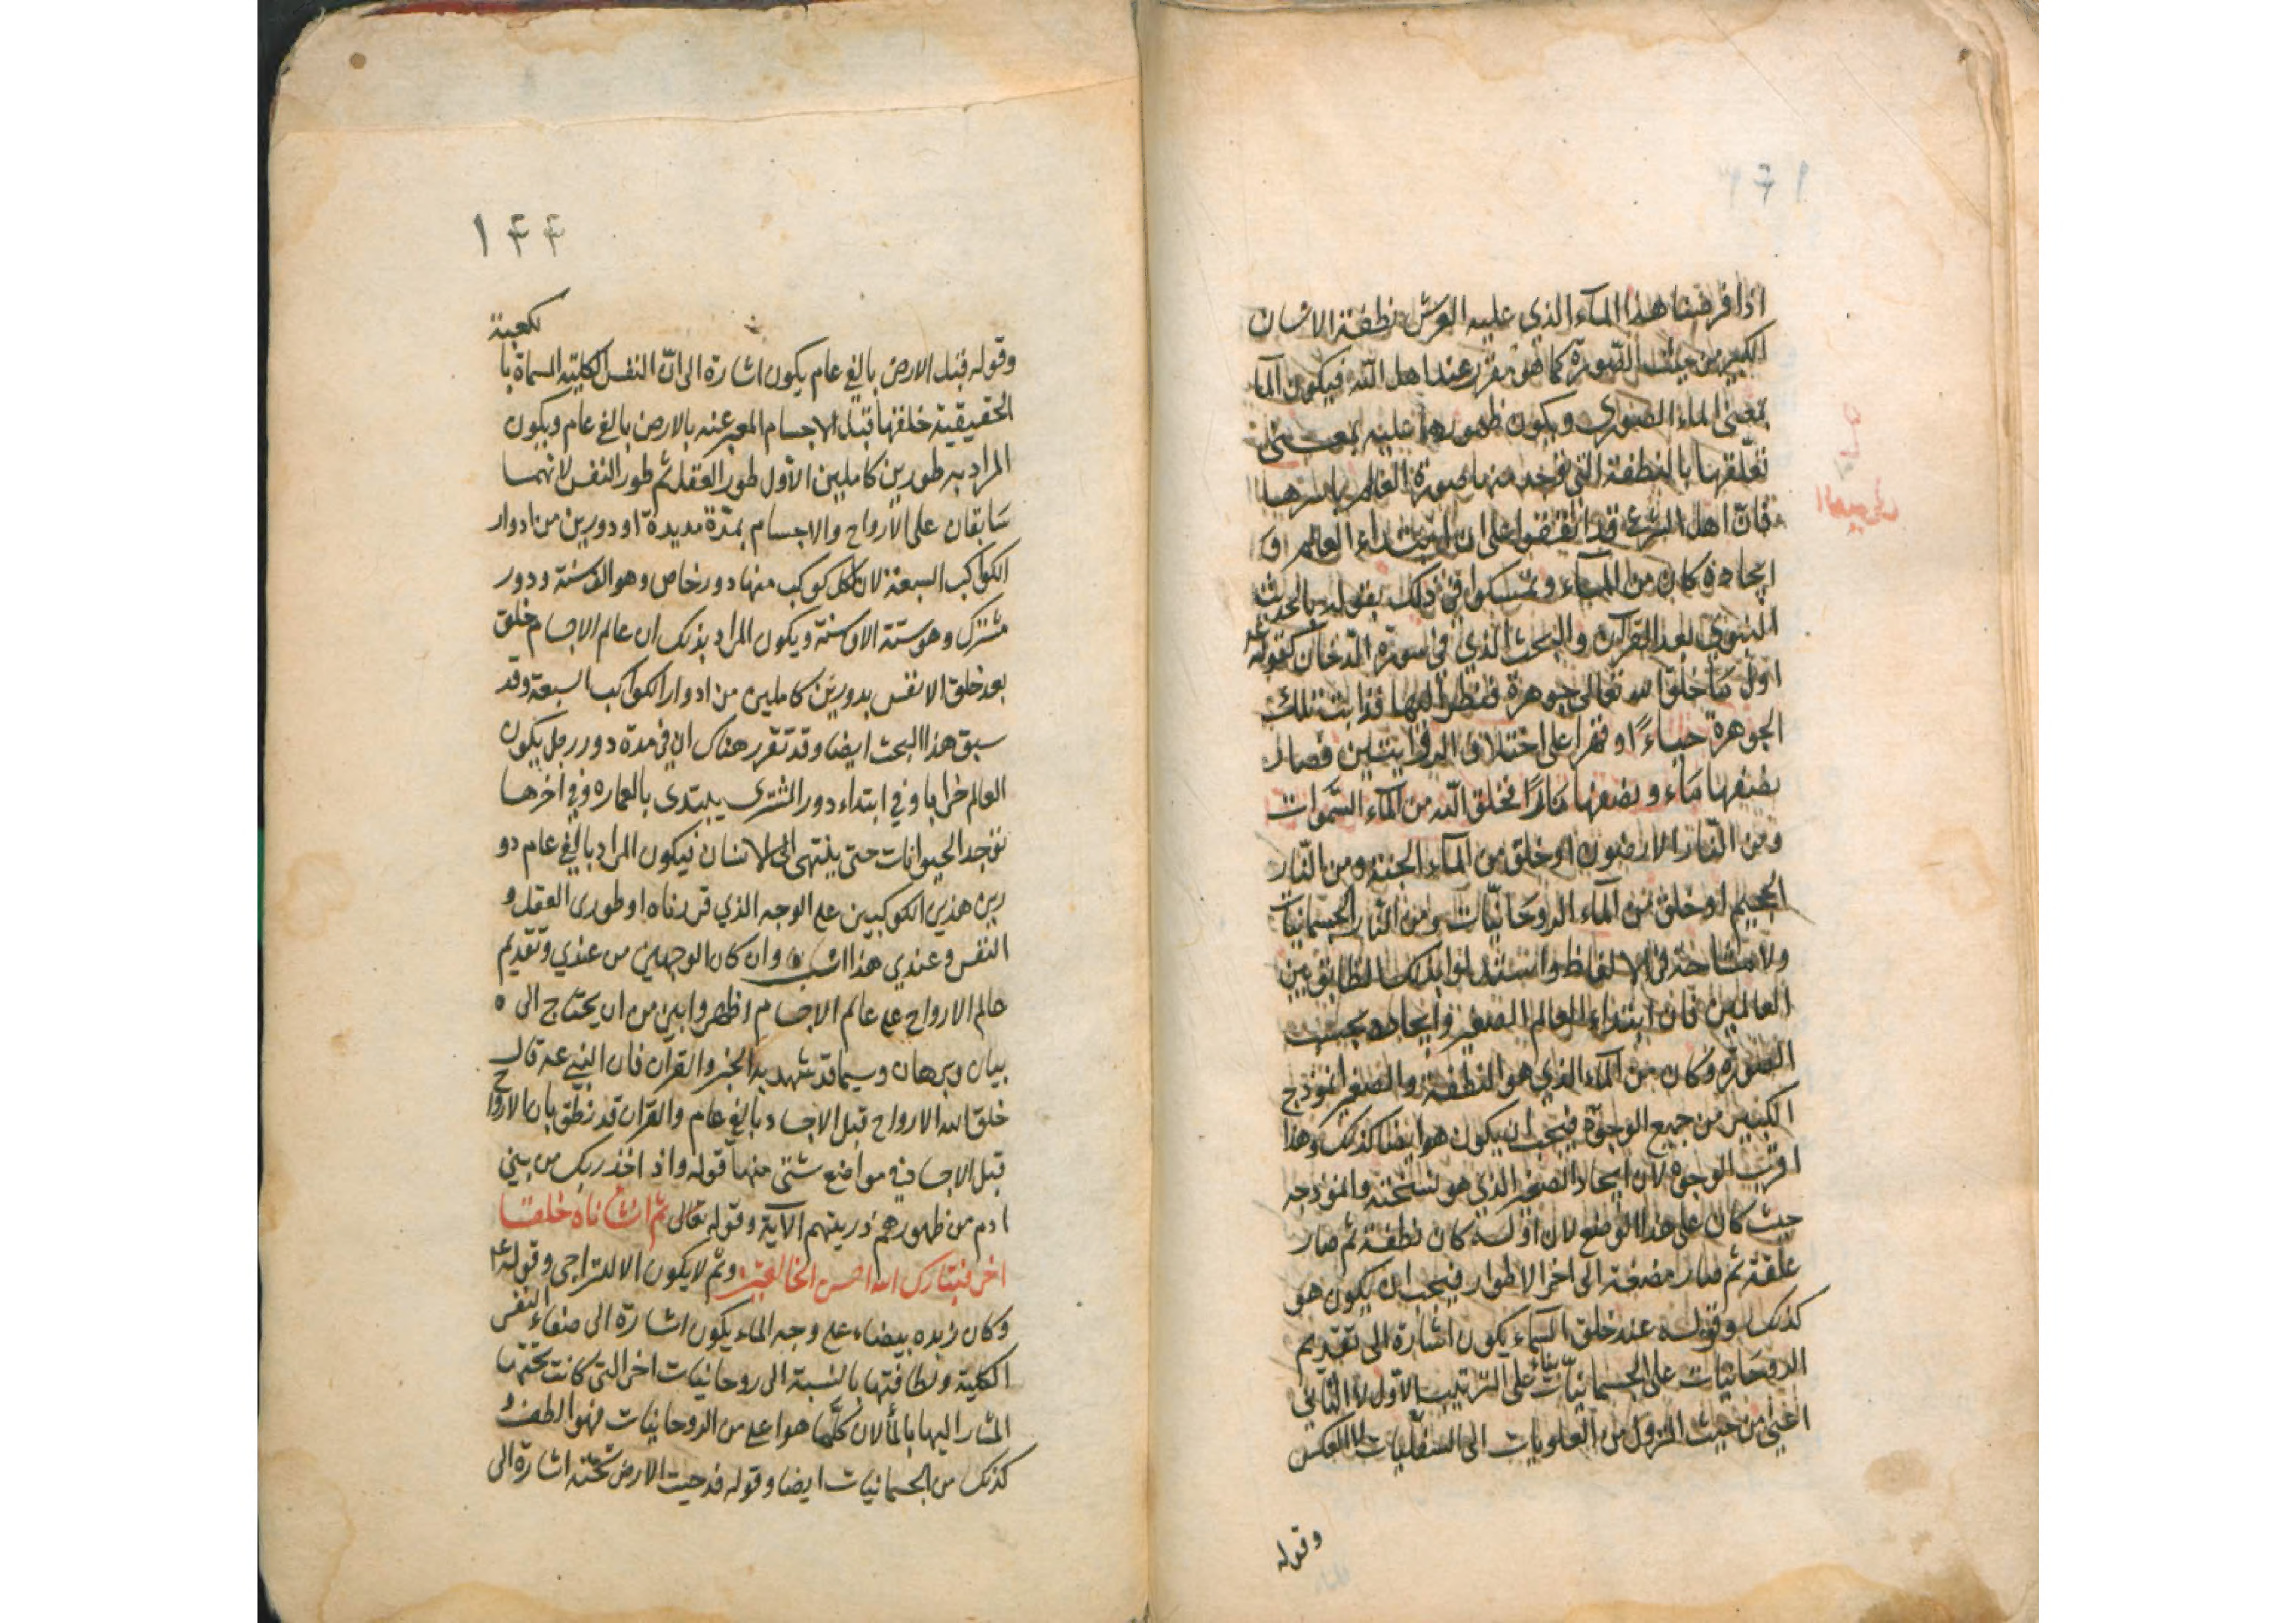 اذا فرضنا هذا المآء الذي عليه العرش نطفة الانسان
الكبير من حيث الصّورة كما هو مقرر عند اهل اللّه فيكون المآ
بمعنى الماء الصوري ويكون ظهورهما عليه بمعنى
تعلّقها بالنطفة التي توجد منها صورة العالم باسرها
فانّ اهل الشرع قد اتفقوا على ان ابتداء العالم و
ايجاده كان من المآء وتمسكوا في ذلك بقوله بالحديث
النبوي بعد القرآن والبحث الذي في سورة الدخان كقوله ع
اول ما خلق الله تعالى جوهرة فنظر اليها فذابت تلك
الجوهرة حياءً او قهرا على اختلاف الروايتين فصار
نصفها مَاء و نصفها نَارًا فخلق اللّه من المآء السّموات
ومن النّار الارضون او خلق من المآء الجنة ومن النّار
الجحيم او خلق من المآء الروحَانيّات ومن النّار الجسمانيات
ولا مشاحة في الالفاظ واستدلوا بذلك التطابق بين
العالمين فان ابتداء العالم الصغير وايجاده بحسب
الصّورة وكان من المآء الذي هو النطفة والصغير انموذج
الكبير من جميع الوجوه فيجب ان يكون هو ايضا كذلك وهذا
اقرب الوجوه لان ايجاد الصغير الذي هو نسخته وانموذجه
حيث كان على هذا الوضع لان اوله كان نطفة ثم صار
علقة ثم صار مضغة الى اخر الاطوار فيجب ان يكون هو
كذلك وقوله عند خلق السّماء يكون اشارة الى تقديم
الروحَانيّات على الجسمانيّات بناء على الترتيب الاول لا الثاني
اعني من حيث النزول من العلويات الى السفليات لا العكس
وقوله
١۴۴
لكعبة
وقوله قبل الارض بالفي عام يكون اشارة الى انّ النفس الكلية المسماة با
الحقيقية خلقها قبل الاجسام المعبر عنه بالارض بالفي عام ويكون
المراد به طورين كاملين الاول طور العقل ثم طور النفس لانهما
سَابقان على الارواح والاجسام بمدّة مديدة او دورين من ادوار
الكواكب السبعة لان لكل كوكب منها دور خاص وهو الف سنة ودور
مشترك وهو ستة الاف سنة ويكون المراد بذلك ان عالم الاجسام خلق
بعد خلق الانفس بدورين كاملين من ادوار الكواكب السبعة وقد
سبق هذا البحث ايضا وقد تقرر هناك ان في مدة دور زحل يكون
العالم خرابا وفي ابتداء دور المشترى يبتدى بالعماره وفي اخرها
توجد الحيوانات حتى ينتهى الى الانسان فيكون المراد بالفي عام دو
رين هذين الكوكبين على الوجه الذي قررناه او طورى العقل و
النفس وعندي هذا انسب وان كان الوجهين من عندي وتقديم
عالم الارواح على عالم الاجسام اظهر وابين من ان يحتاج الى ه
بيان وبرهان وسيما قد شهد به الخبر والقرآن فان النبي عه قال
خلق الله الارواح قبل الاجساد بالفي عام والقران قد نطق بان الارواح
قبل الاجساد في مواضع شتى منها قوله واذ اخذ ربك من بني
ادم من ظهورهم ذريتهم الآية وقوله تعالى ثم انشاناه خلقا
اخر فتبارك الله احسن الخالقين وثم لا يكون الا للتراخى وقوله ع
وكان زبده بيضاء على وجه الماء يكون اشارة الى صفاء النفس
الكلية ونظافتها بالنسبة الى روحانيات اخر التى كانت تحتها
المشار اليها بالمآ لان كلّما هو اعلى من الروحانيات فهو الطف و
كذلك من الجسمانيات ايضا وقوله فدحيت الارض تحته اشارة الى